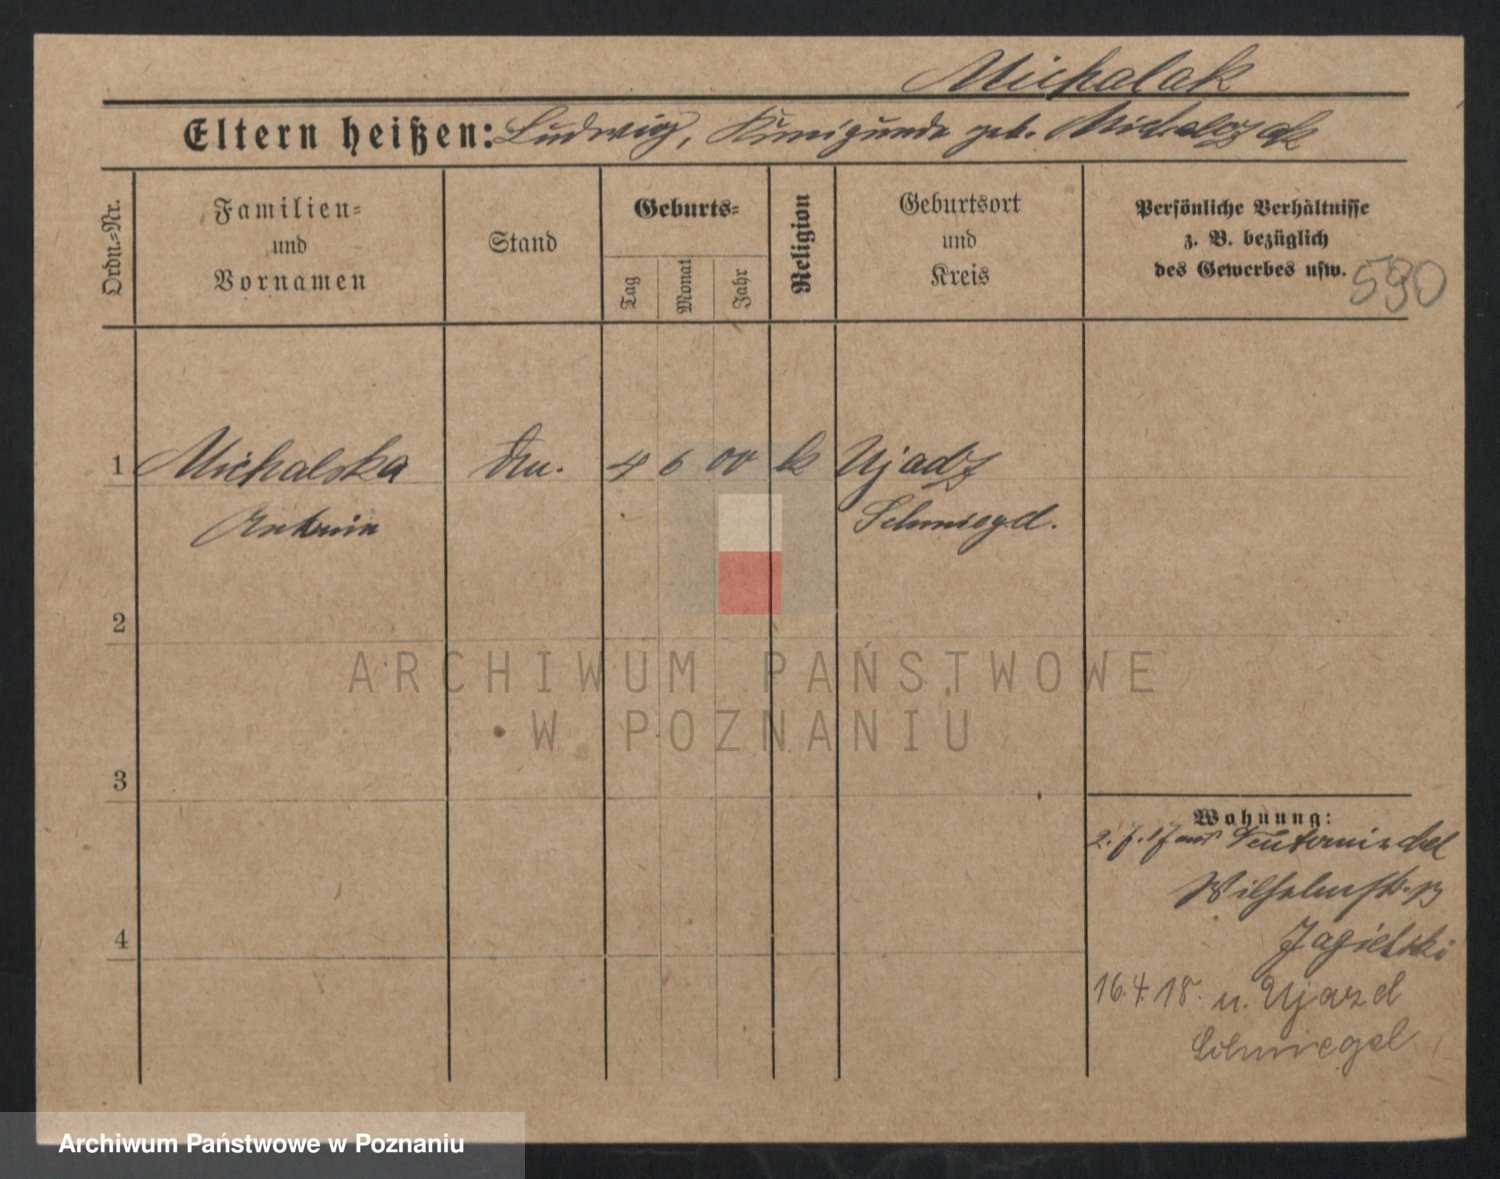 Michalak
Eltern heißen: Ludwig, Kunigunde geb. Michalczak
Ordn.-Nr.
Familien- und Vornamen
Stand
Geburts-
Tag
Monat
Jahr
Religion
Geburtsort und Kreis
Persönliche Verhältnisse
z. B. bezüglich
des Gewerbes usw.
590
1 Michalska 4 6 00 k Ujadz
Antonia Schmiegel.
2
3
4
Wohnung:
2.7.17 Neutomischel
Wilhelmstr.
Jagielski
16.4.18. n. Ujazd
Schmiegel
ARCHIWUM PAŃSTWOWE
W POZNANIU
Archiwum Państwowe w Poznaniu